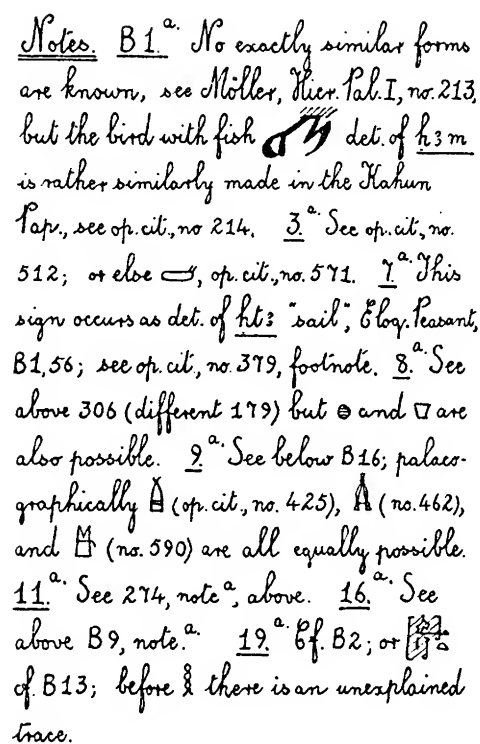 Notes. B1.a. No exactly similar forms
are known, see Möller, Hier. Pal. I, no. 213,
but the bird with fish det. of ḥ3m
is rather similarly made in the Kahun
Pap., see op. cit., no 214. 3.a. See op. cit., no.
512; or else , op. cit., no. 571. 7.a. This
sign occurs as det. of ḥt3 "sail", Eloq. Peasant,
B1,56; see op. cit., no. 379, footnote. 8.a. See
above 306 (different 179) but 𓐍 and are
also possible. 9.a. See below B16; palaeo-
graphically (op. cit., no. 425), (no. 462),
and (no. 590) are all equally possible.
11.a. See 274, note a, above. 16.a. See
above B9, note.a. 19.a. Cf. B2; or
of B13; before 𓎛 there is an unexplained
trace.